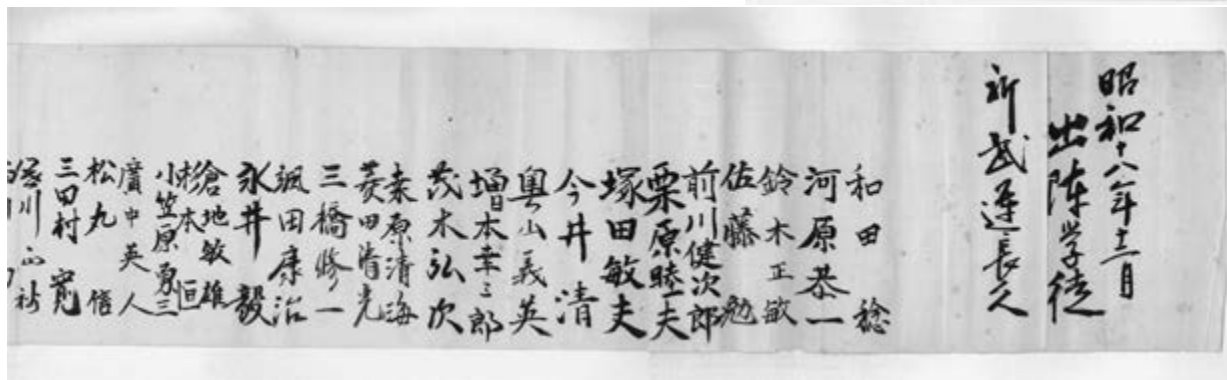 昭和十八年十二月
出陣学徒
祈武運長久
和田 稔
河原恭一
鈴木正敏
佐藤 勉
前川健次郎
栗原睦夫
塚田敏夫
今井 清
奥山義英
増本幸三郎
茂木弘次
桑原清海
菱田清光
三橋修一
颯田康治
永井 毅
倉地敏雄
杉本 恒
小笠原勇三
廣中英人
松丸 信
三田村 寛